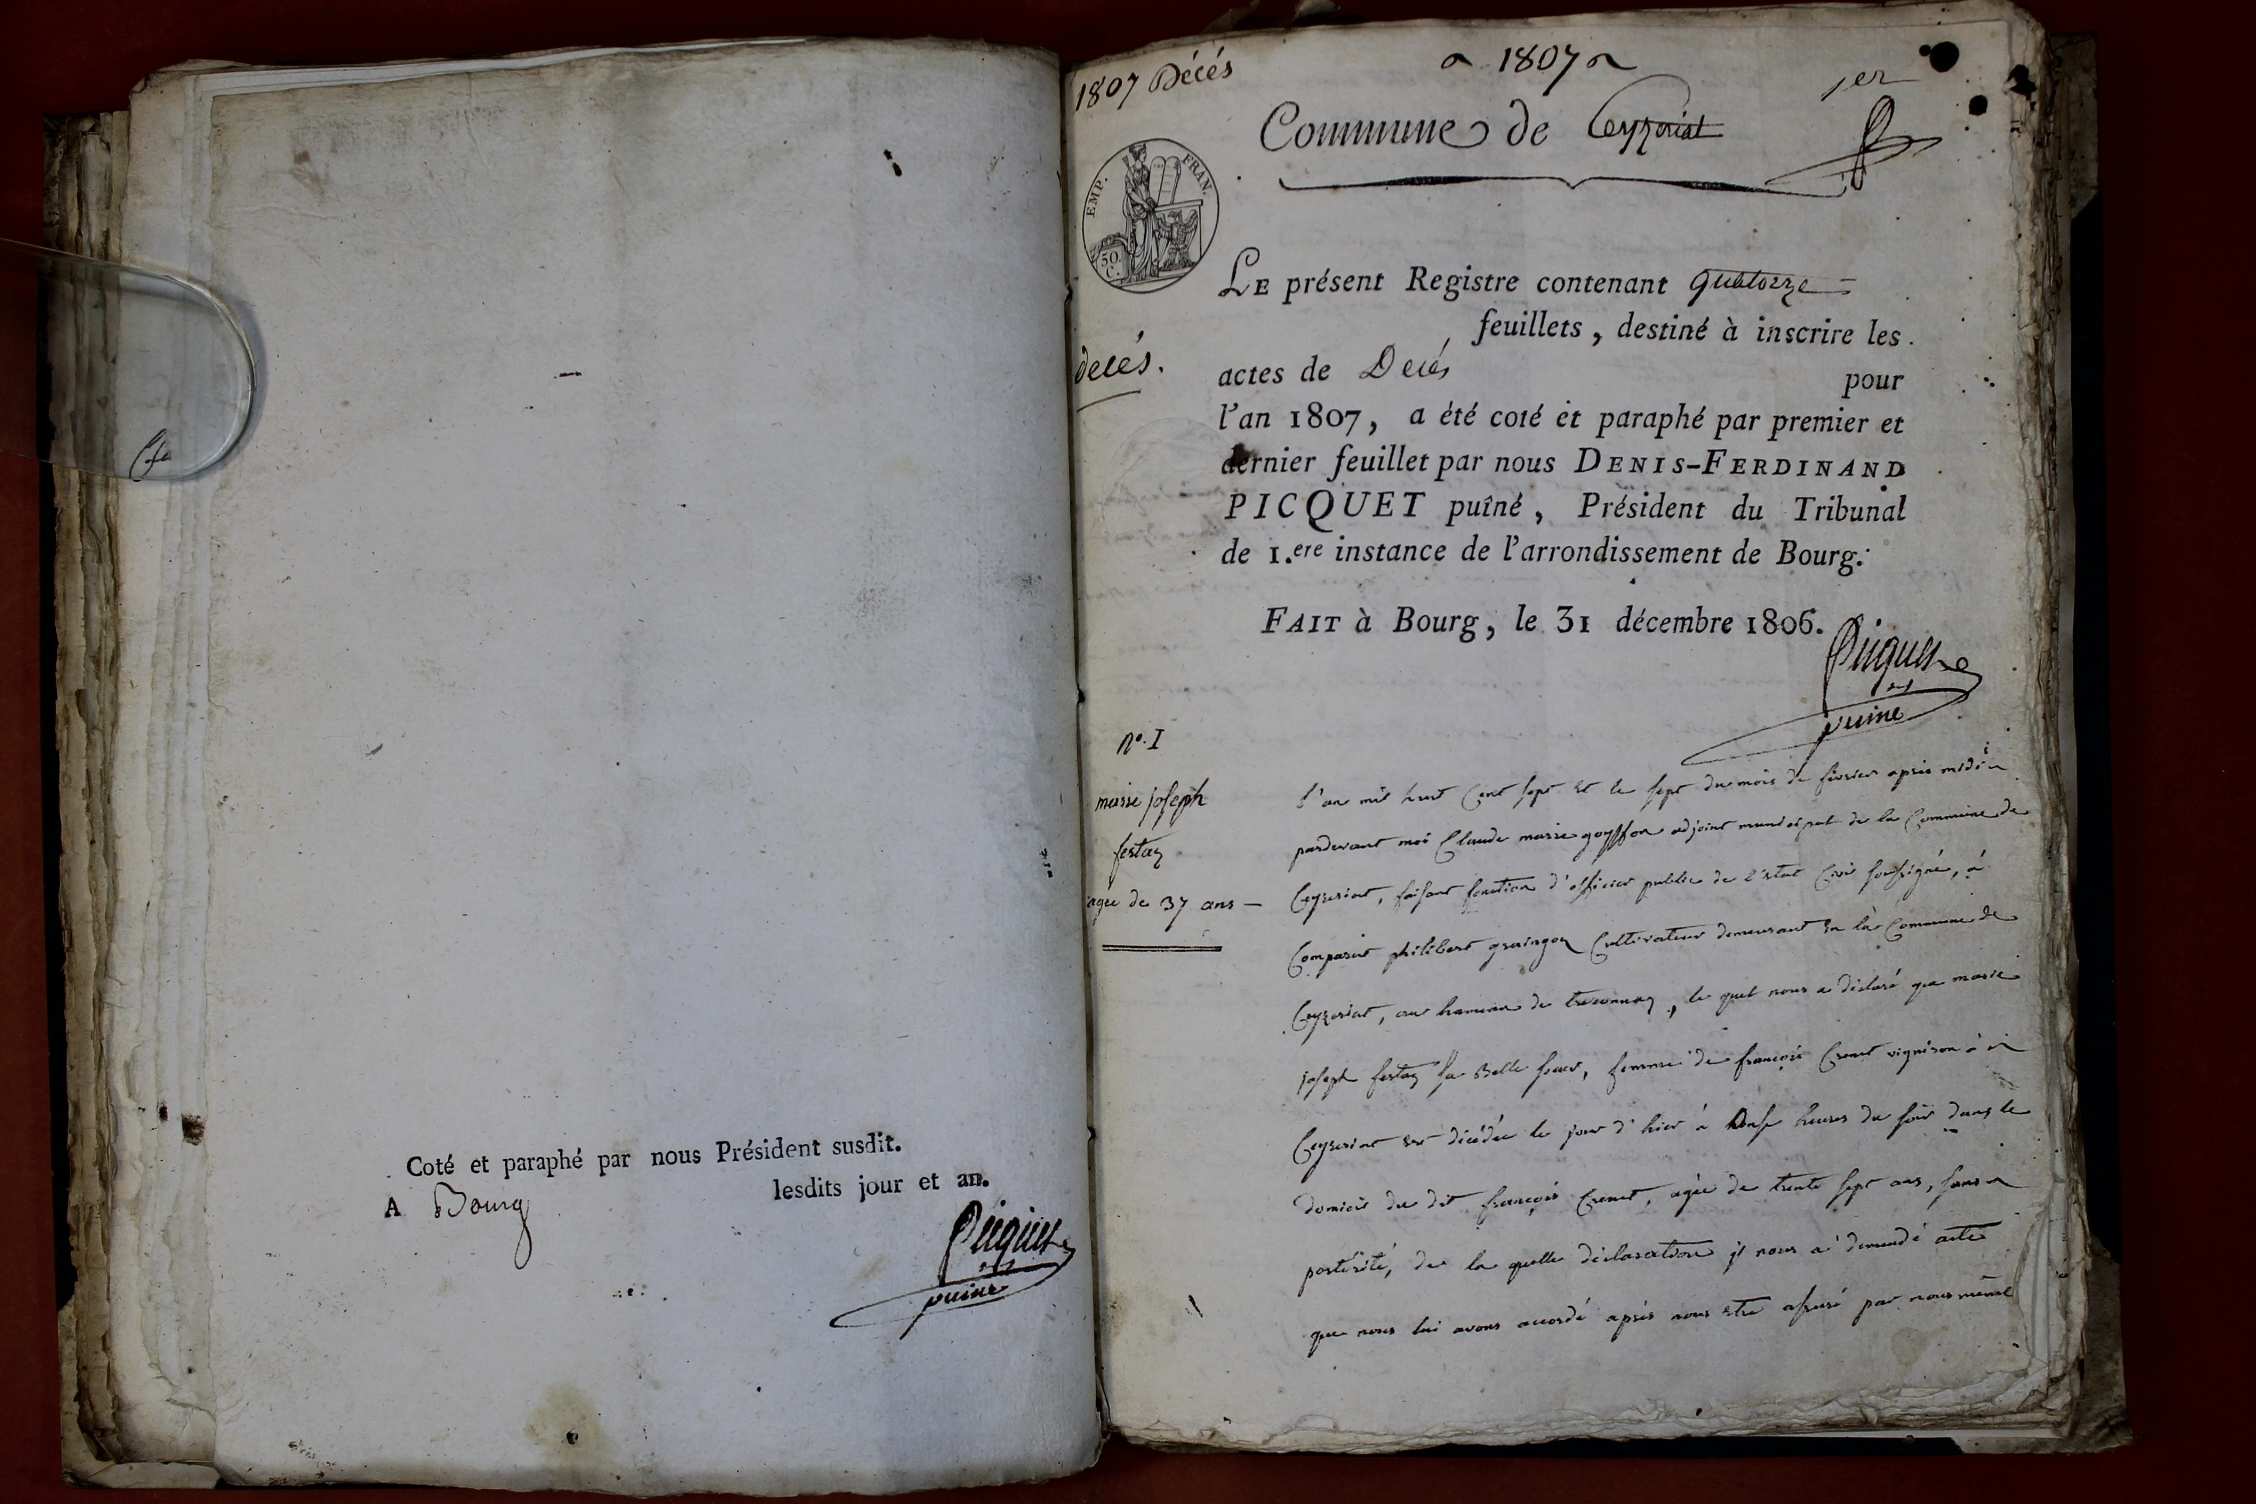 Coté et paraphé par nous Président susdit.
A Bourg lesdits jour et an.
Picquet
puiné
1807 Décés
1807
1er
Commune de Ceyzeriat
EMP. FRAN.
50
C.
LE présent Registre contenant quatorze
feuillets, destiné à inscrire les
decés.
actes de Decés pour
l'an 1807, a été coté et paraphé par premier et
dernier feuillet par nous DENIS-FERDINAND
PICQUET puîné, Président du Tribunal
de 1.ere instance de l'arrondissement de Bourg.
FAIT à Bourg, le 31 décembre 1806.
Picquet
puiné
n°. I
marie joseph
festaz
agée de 37 ans
l'an mil huit Cent sept et le sept du mois de fevrier après midi
pardevant moi Claude marie goyffon adjoint municipal de la Commune de
Ceyzeriat, faisant fonction d'officier public de l'etat Civil soussigné, à
Comparut philibert graingon Cultivateur demeurant en la Commune de
Ceyzeriat, au hameau de tresonnaz, le quel nous a déclaré que marie
joseph festaz sa Belle soeur, femme de françois Crenet vigneron à
Ceyzeriat est décédée le jour d'hier à onse heures du soir dans le
domicil du dit françois Crenet, agée de trente sept ans, sans
postérité, de la quelle déclaration il nous a demandé acte
que nous lui avons accordé après nous etre assuré par nous même